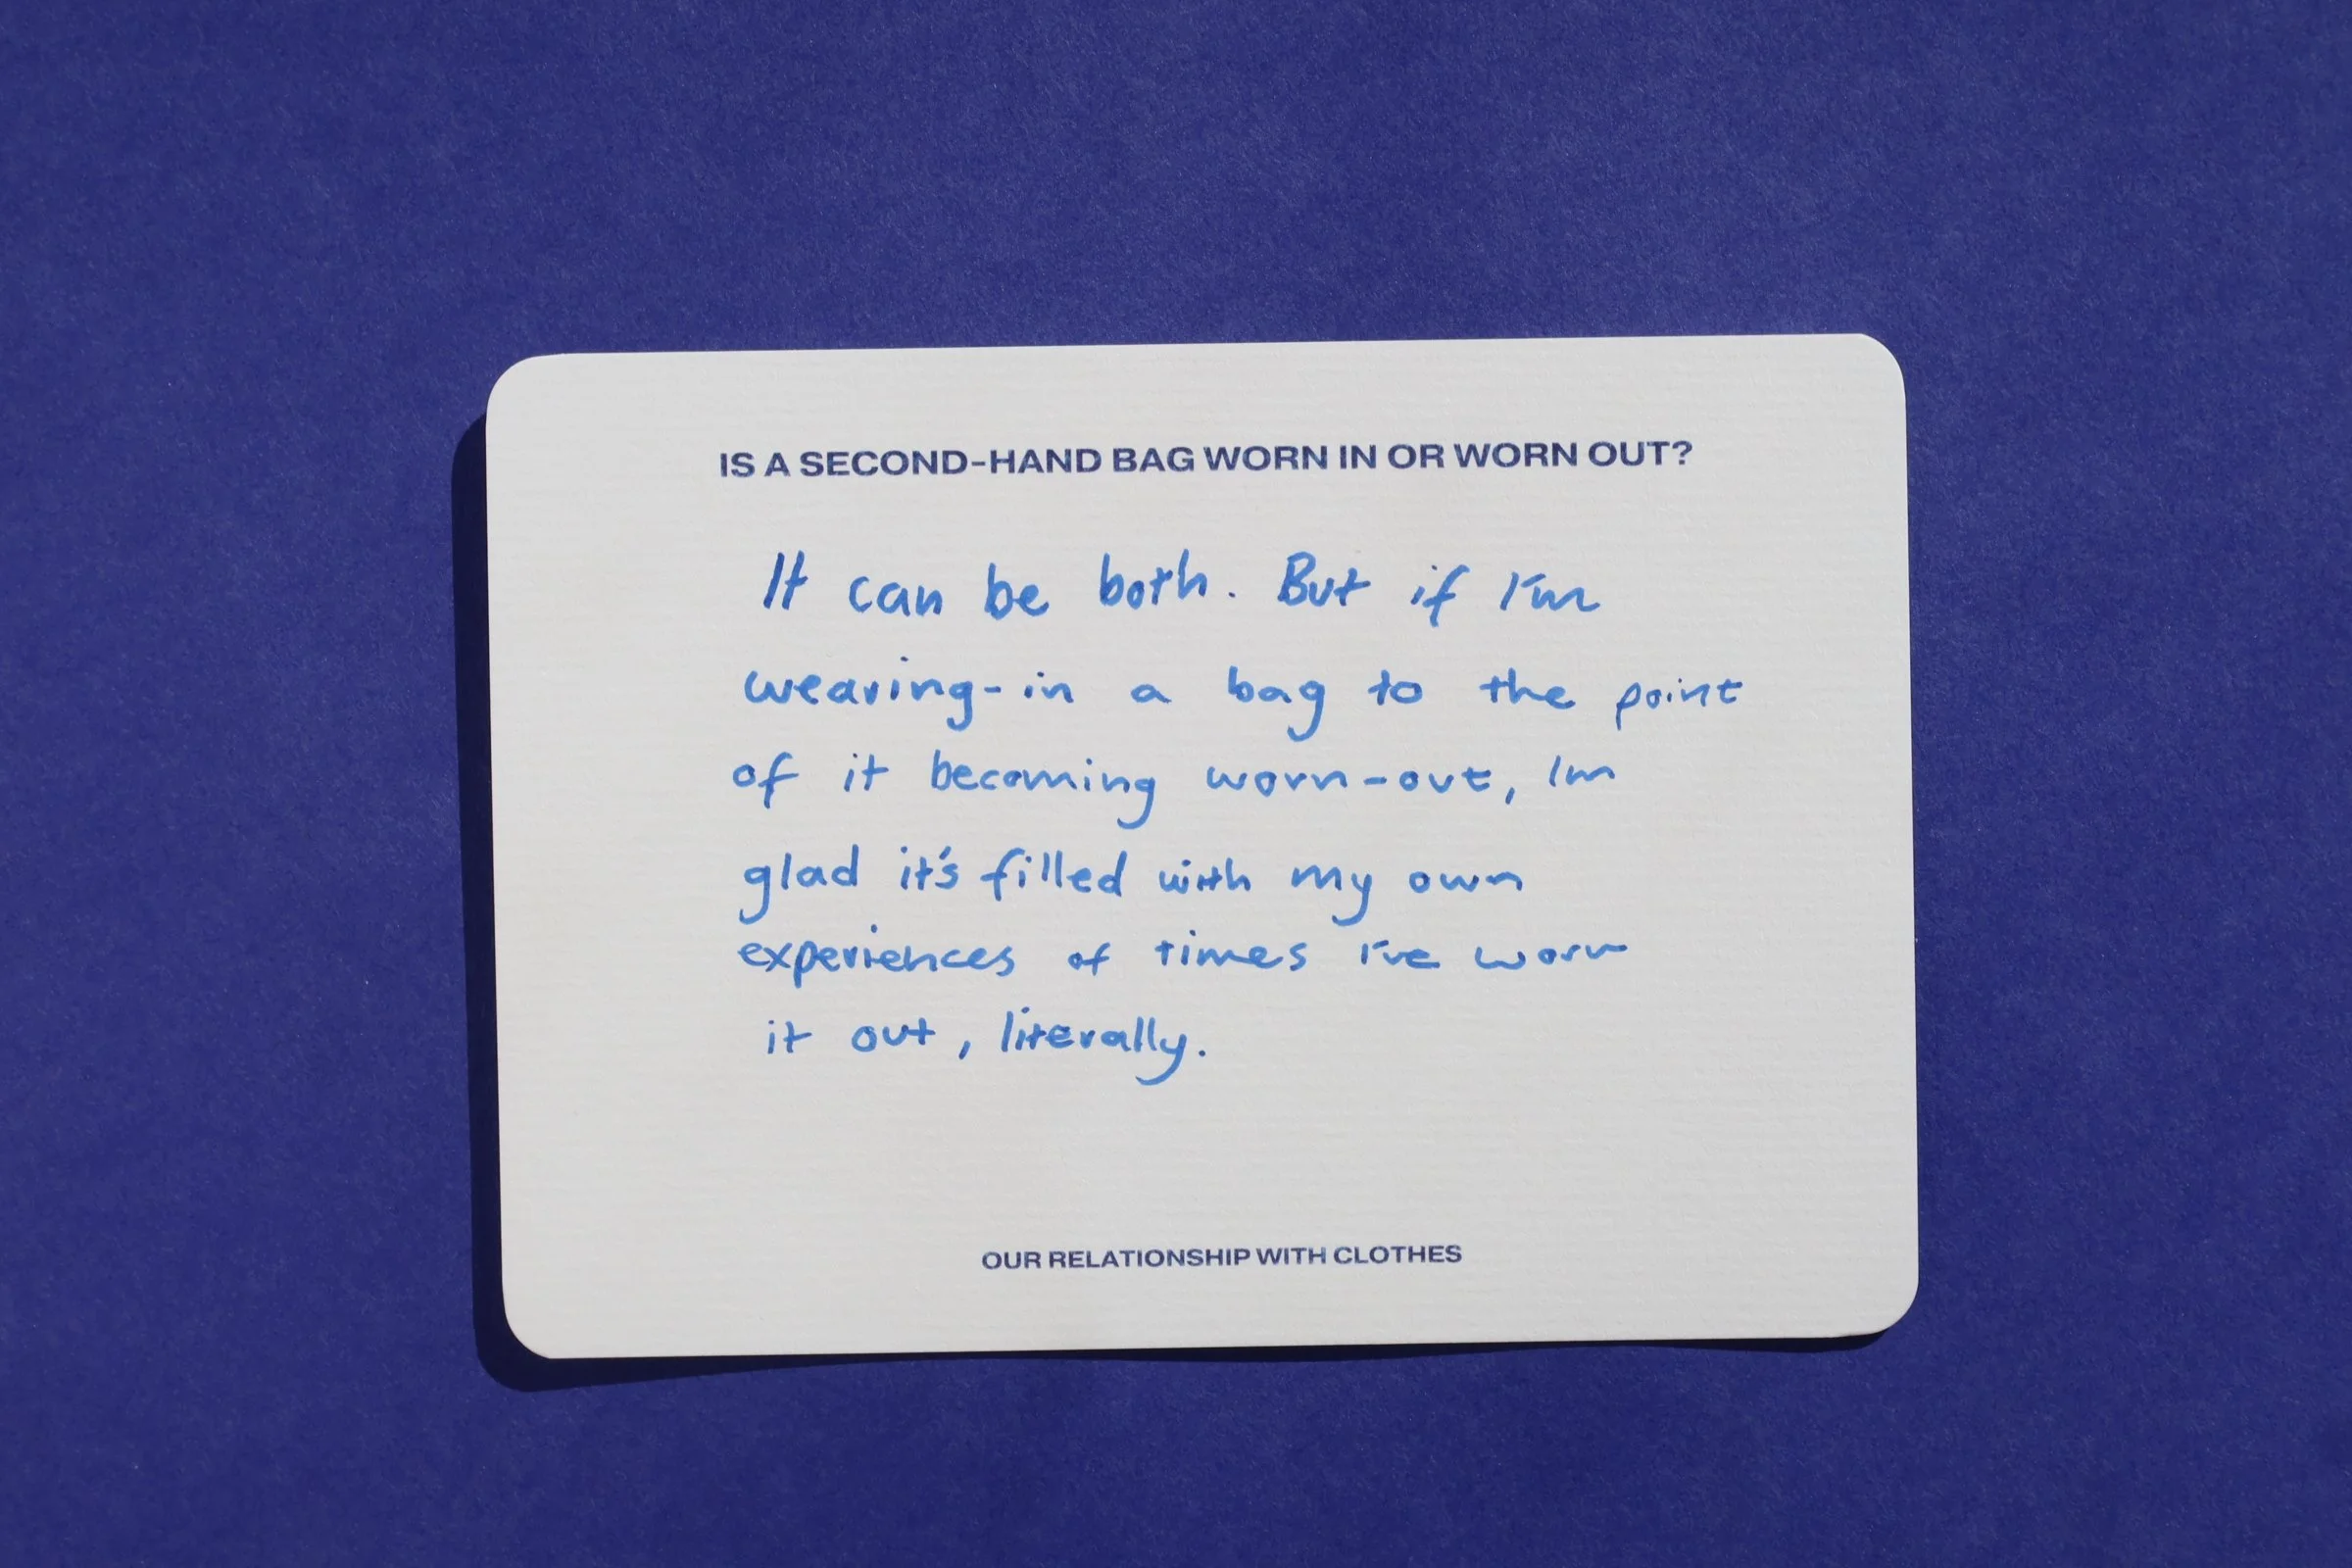 IS A SECOND-HAND BAG WORN IN OR WORN OUT?
It can be both. But if I'm
wearing-in a bag to the point
of it becoming worn-out, Im
glad it's filled with my own
experiences of times I've worn
it out, literally.
OUR RELATIONSHIP WITH CLOTHES